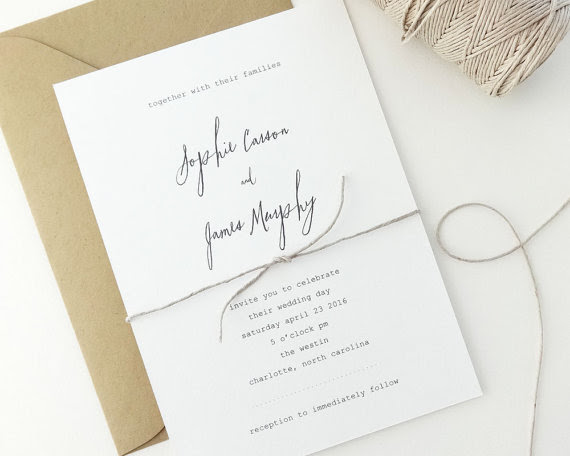 together with their families
Sophie Carson
and
James Murphy
invite you to celebrate
their wedding day
saturday april 23 2016
5 o'clock pm
the westin
charlotte, north carolina
reception to immediately follow